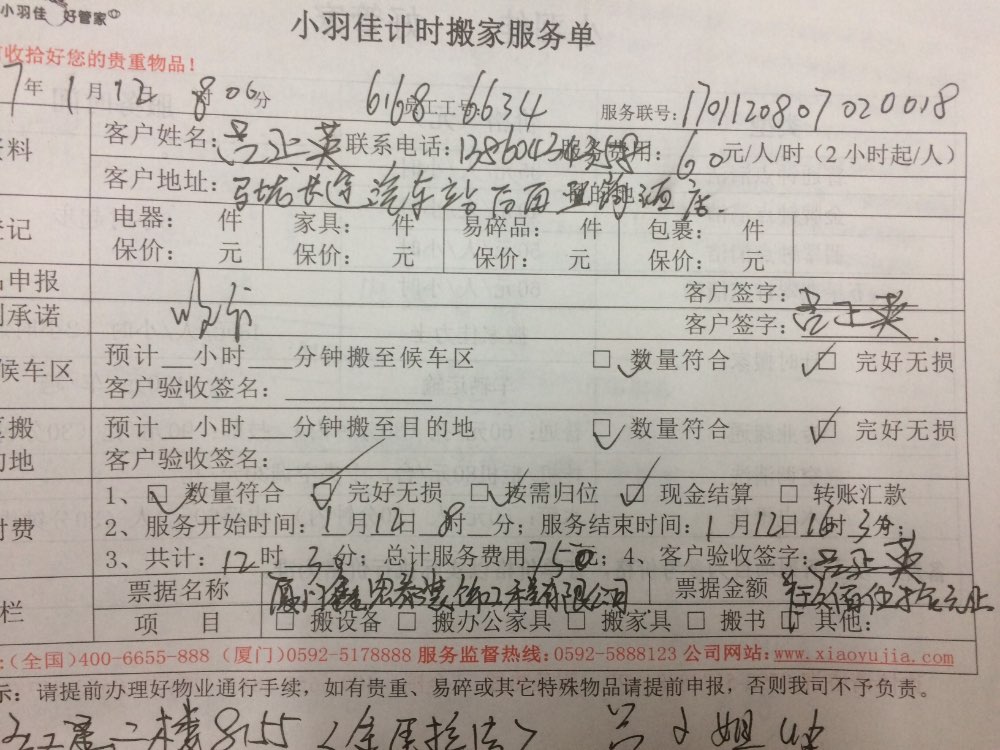 小羽佳 好管家
小羽佳计时搬家服务单
收拾好您的贵重物品！
7年1月12日 8时06分 6168 员工工号: 6634 服务联号: 1701120807020018
客户姓名: 吕正英 联系电话: 服务费用: 60元/人/时（2小时起/人）
客户地址: 长途汽车站后面 目的地 酒店.
登记 电器: 件 家具: 件 易碎品: 件 包裹: 件
保价: 元 保价: 元 保价: 元 保价: 元
申报 客户签字: 吕正英
承诺 客户签字:
候车区 预计__小时___分钟搬至候车区 □ 数量符合 □ 完好无损
客户验收签名:
搬 预计__小时___分钟搬至目的地 □ 数量符合 □ 完好无损
的地 客户验收签名:
1、□ 数量符合 □ 完好无损 □ 按需归位 □ 现金结算 □ 转账汇款
付费 2、服务开始时间: 1月12日8时 分; 服务结束时间: 1月12日16时3分;
3、共计: 12时3分; 总计服务费用750元; 4、客户验收签字: 吕正英
栏 票据名称 厦门 装饰工程有限公司 票据金额
项 目 □ 搬设备 □ 搬办公家具 □ 搬家具 □ 搬书 □ 其他:
:(全国)400-6655-888 (厦门)0592-5178888 服务监督热线:0592-5888123 公司网站:www.xiaoyujia.com
示: 请提前办理好物业通行手续，如有贵重、易碎或其它特殊物品请提前申报，否则我司不予负责。
二楼8155 吕小姐